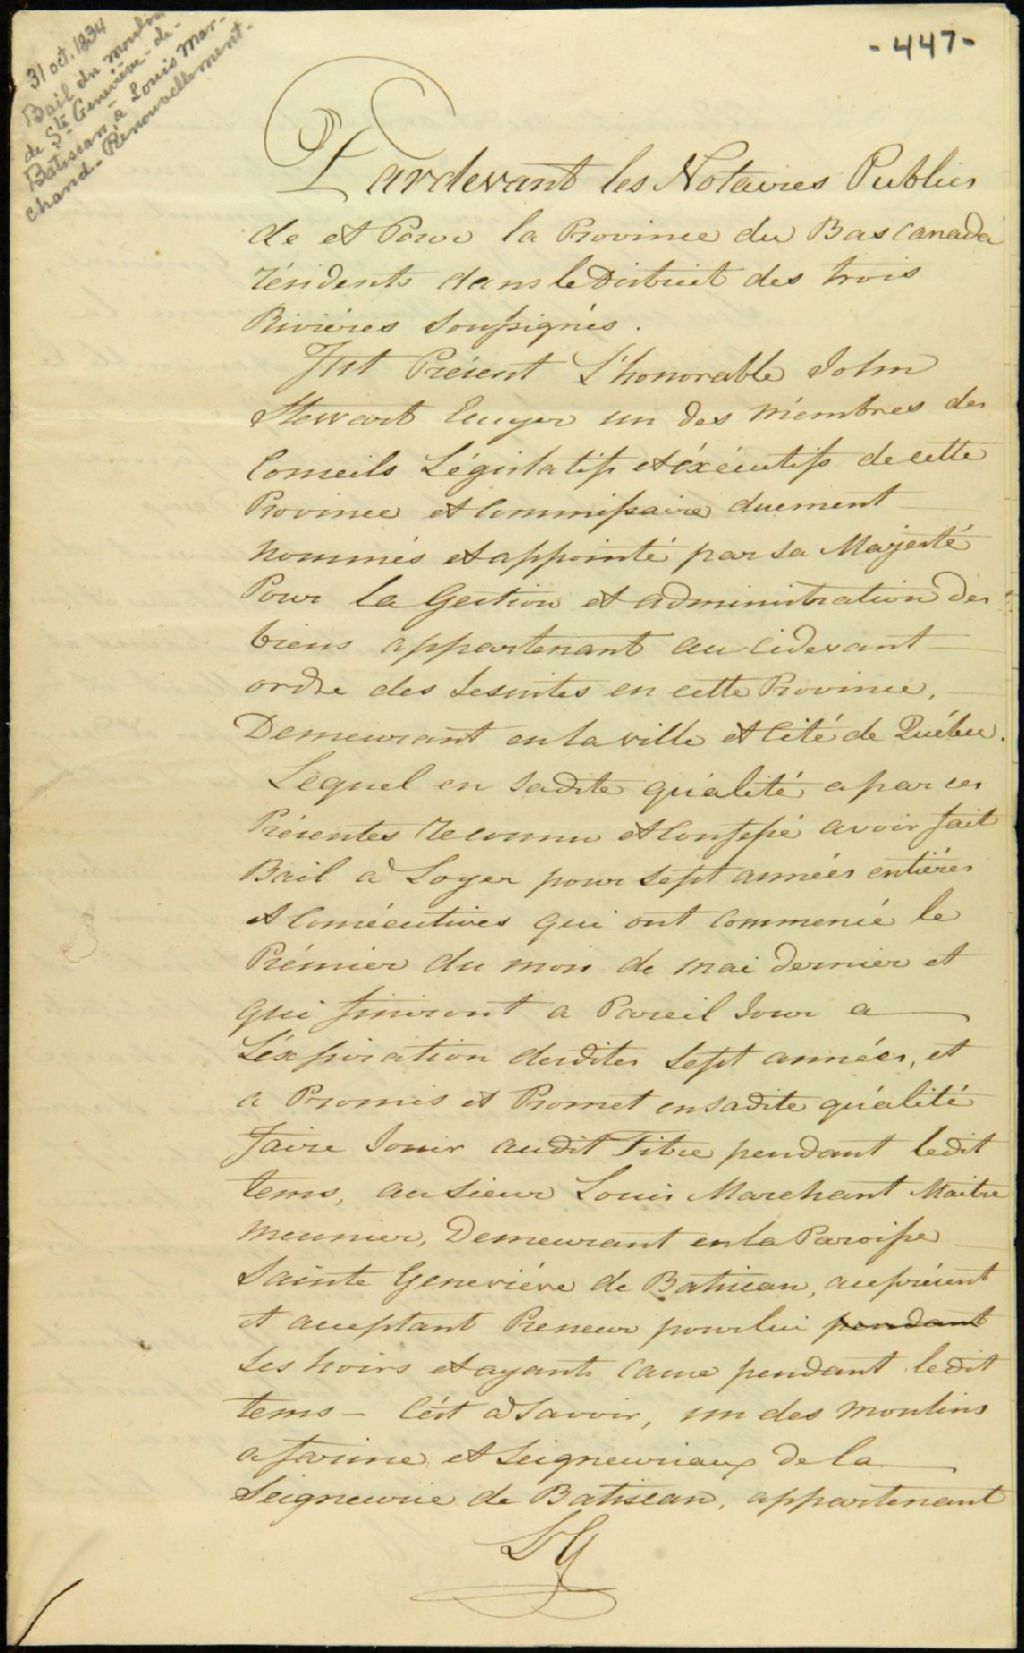 31 oct. 1834
Bail du moulin
de Ste Geneviève-de-
Batiscan, à Louis Mar-
chand - Renouvellement -
- 447 -
Pardevant les Notaires Publics
de et Pour la Province du Bas Canada
résidents dans le District des trois
Riviéres Soussignés.
Fut Présent L'honorable John
Stewart Ecuyer un des mémbres des
Conseils Législatifs et éxécutifs de cette
Province et Commissaire duement
nommés et appointé par sa Majesté
Pour la Gestion et administration des
biens appartenant au cidevant
ordre des Jesuites en cette Province,
Demeurant en la ville et Cité de Québec.
Lequel en sadite quálité a par ces
Présentes reconnu et Confessé avoir fait
Bail a Loyer pour sept années entiéres
et Consécutives qui ont commencé le
Prémier du mois de mai dernier et
qui finiront a Pareil Jour a
L'éxpiration desdites sept années, et
a Promis et Promet en sadite quálité
faire Jouir audit Titre pendant ledit
tems, au Sieur Louis Marchant Maitre
meunier, Demeurant en la Paroisse
Sainte Geneviéve de Batiscan, aceprésent
et acceptant Preneur pour lui pendant
ses hoirs et ayants cause pendant ledit
tems - C'ést a savoir, un des moulins
a farine et Seigneuriaux de la
Seigneurie de Batiscan, appartenant
LG